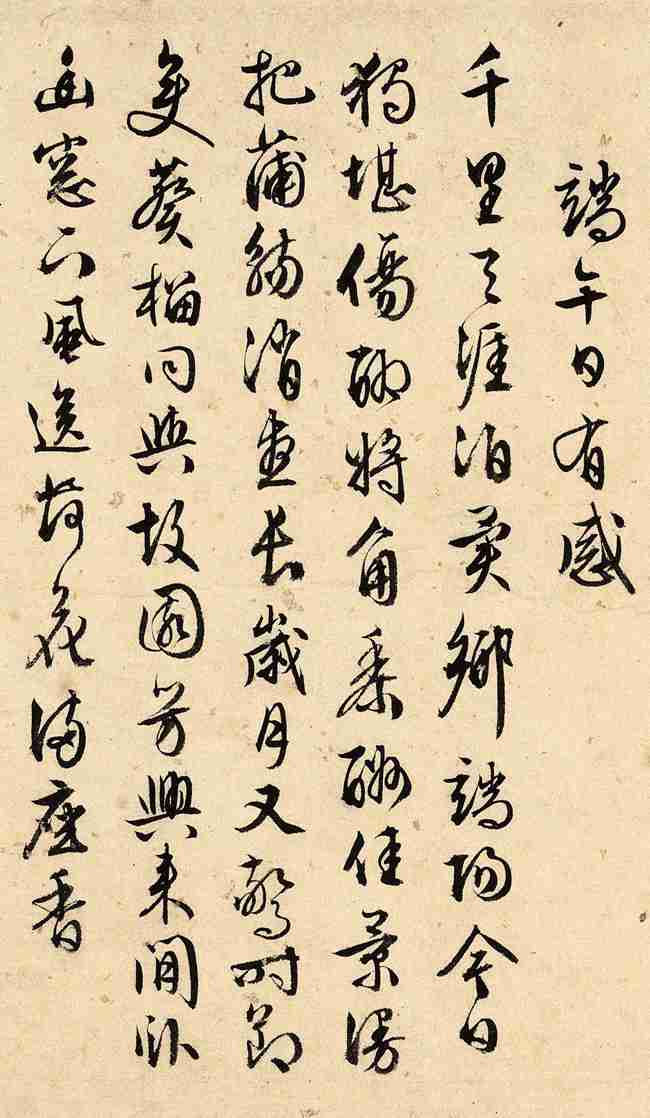 端午日有感
千里天涯泊異鄉端陽今日
獨堪傷聊將角黍酬佳景漫
把蒲觴消晝長歲月又驚時節
變葵榴同與故園芳興來閒臥
幽窓下風送荷花滿座香